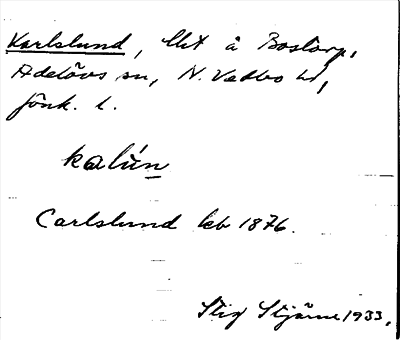 Karlslund, lht å Bostorp,
Adelövs sn, N. Vedbo hd,
Jönk. l.
kalún
Carlslund leb 1876.
Stig Stjärne 1933.